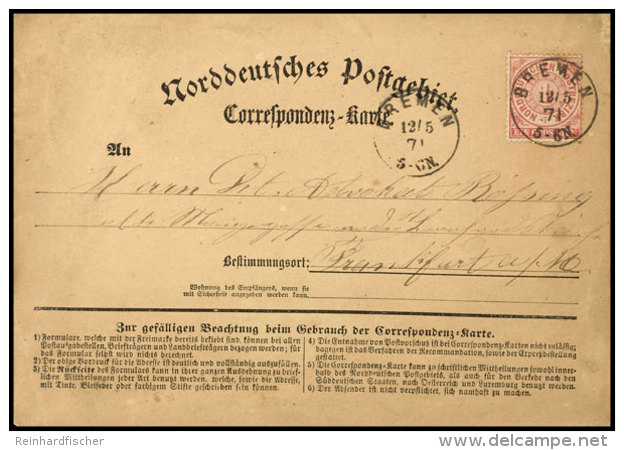 Norddeutsches Postgebiet.
Correspondenz-Karte
BREMEN
12/5
71
5-6N.
BREMEN
12/5
71
5-6N.
An
Herrn Advokat
alte
Bestimmungsort: Frankfurt a/M
Wohnung des Empfängers, wenn sie
mit Sicherheit angegeben werden kann.
Zur gefälligen Beachtung beim Gebrauch der Correspondenz-Karte.
1) Formulare, welche mit der Freimarke bereits beklebt sind, können bei allen
Postaufgabestellen, Briefträgern und Landbriefträgern bezogen werden; für
das Formular selbst wird nichts berechnet.
2) Der obige Vordruck für die Adresse ist deutlich und vollständig auszufüllen.
3) Die Rückseite des Formulars kann in ihrer ganzen Ausdehnung zu brief-
lichen Mittheilungen jeder Art benutzt werden, welche, sowie die Adresse,
mit Tinte, Bleifeder oder farbigem Stifte geschrieben sein können.
4) Die Entnahme von Postvorschuß ist bei Correspondenz-Karten nicht zulässig;
dagegen ist das Verfahren der Recommandation, sowie der Expreßbestellung
gestattet.
5) Die Correspondenz-Karte kann zu schriftlichen Mittheilungen sowohl inner-
halb des Norddeutschen Postgebiets, als auch für den Verkehr nach den
Süddeutschen Staaten, nach Oesterreich und Luxemburg benutzt werden.
6) Der Absender ist nicht verpflichtet, sich namhaft zu machen.
Reinhardfischer
delcampe.net